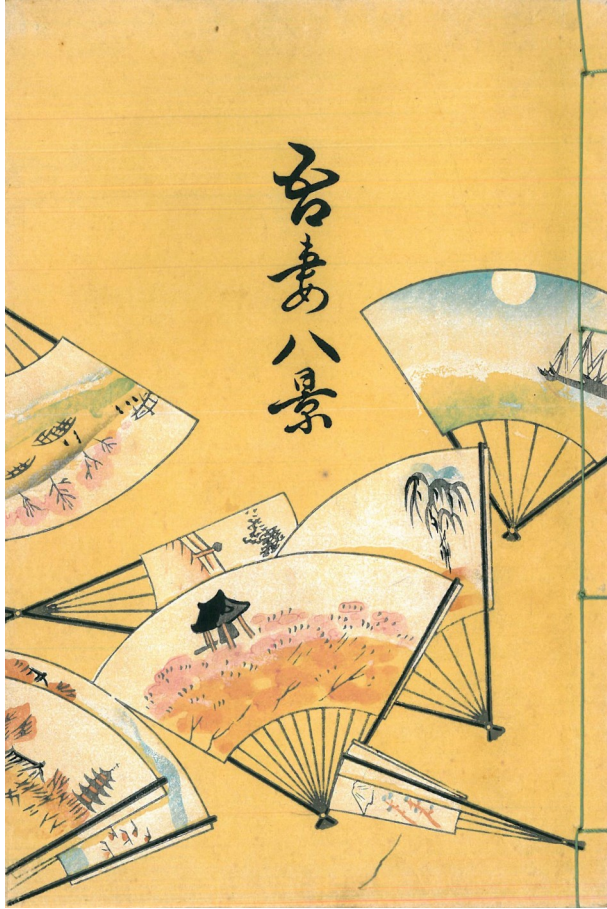 吾妻八景